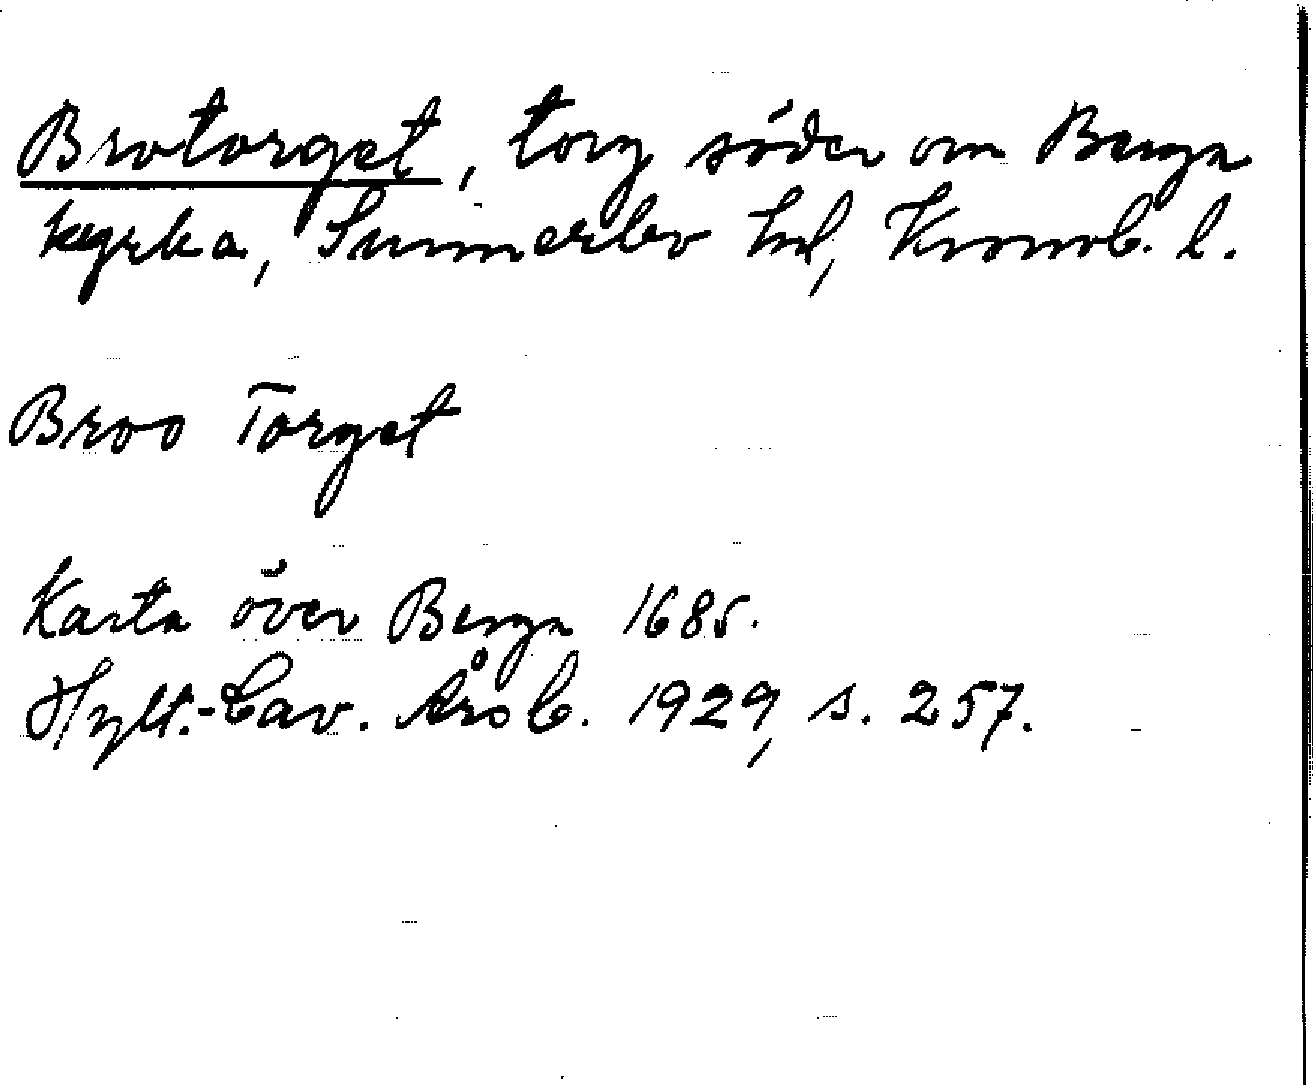 Brotorget, torg söder om Berga
kyrka, Sunnerbo hd, Kronob. l.
Broo Torget
Karta över Berga 1685.
Hylt.-Cav. Årsb. 1929, s. 257.